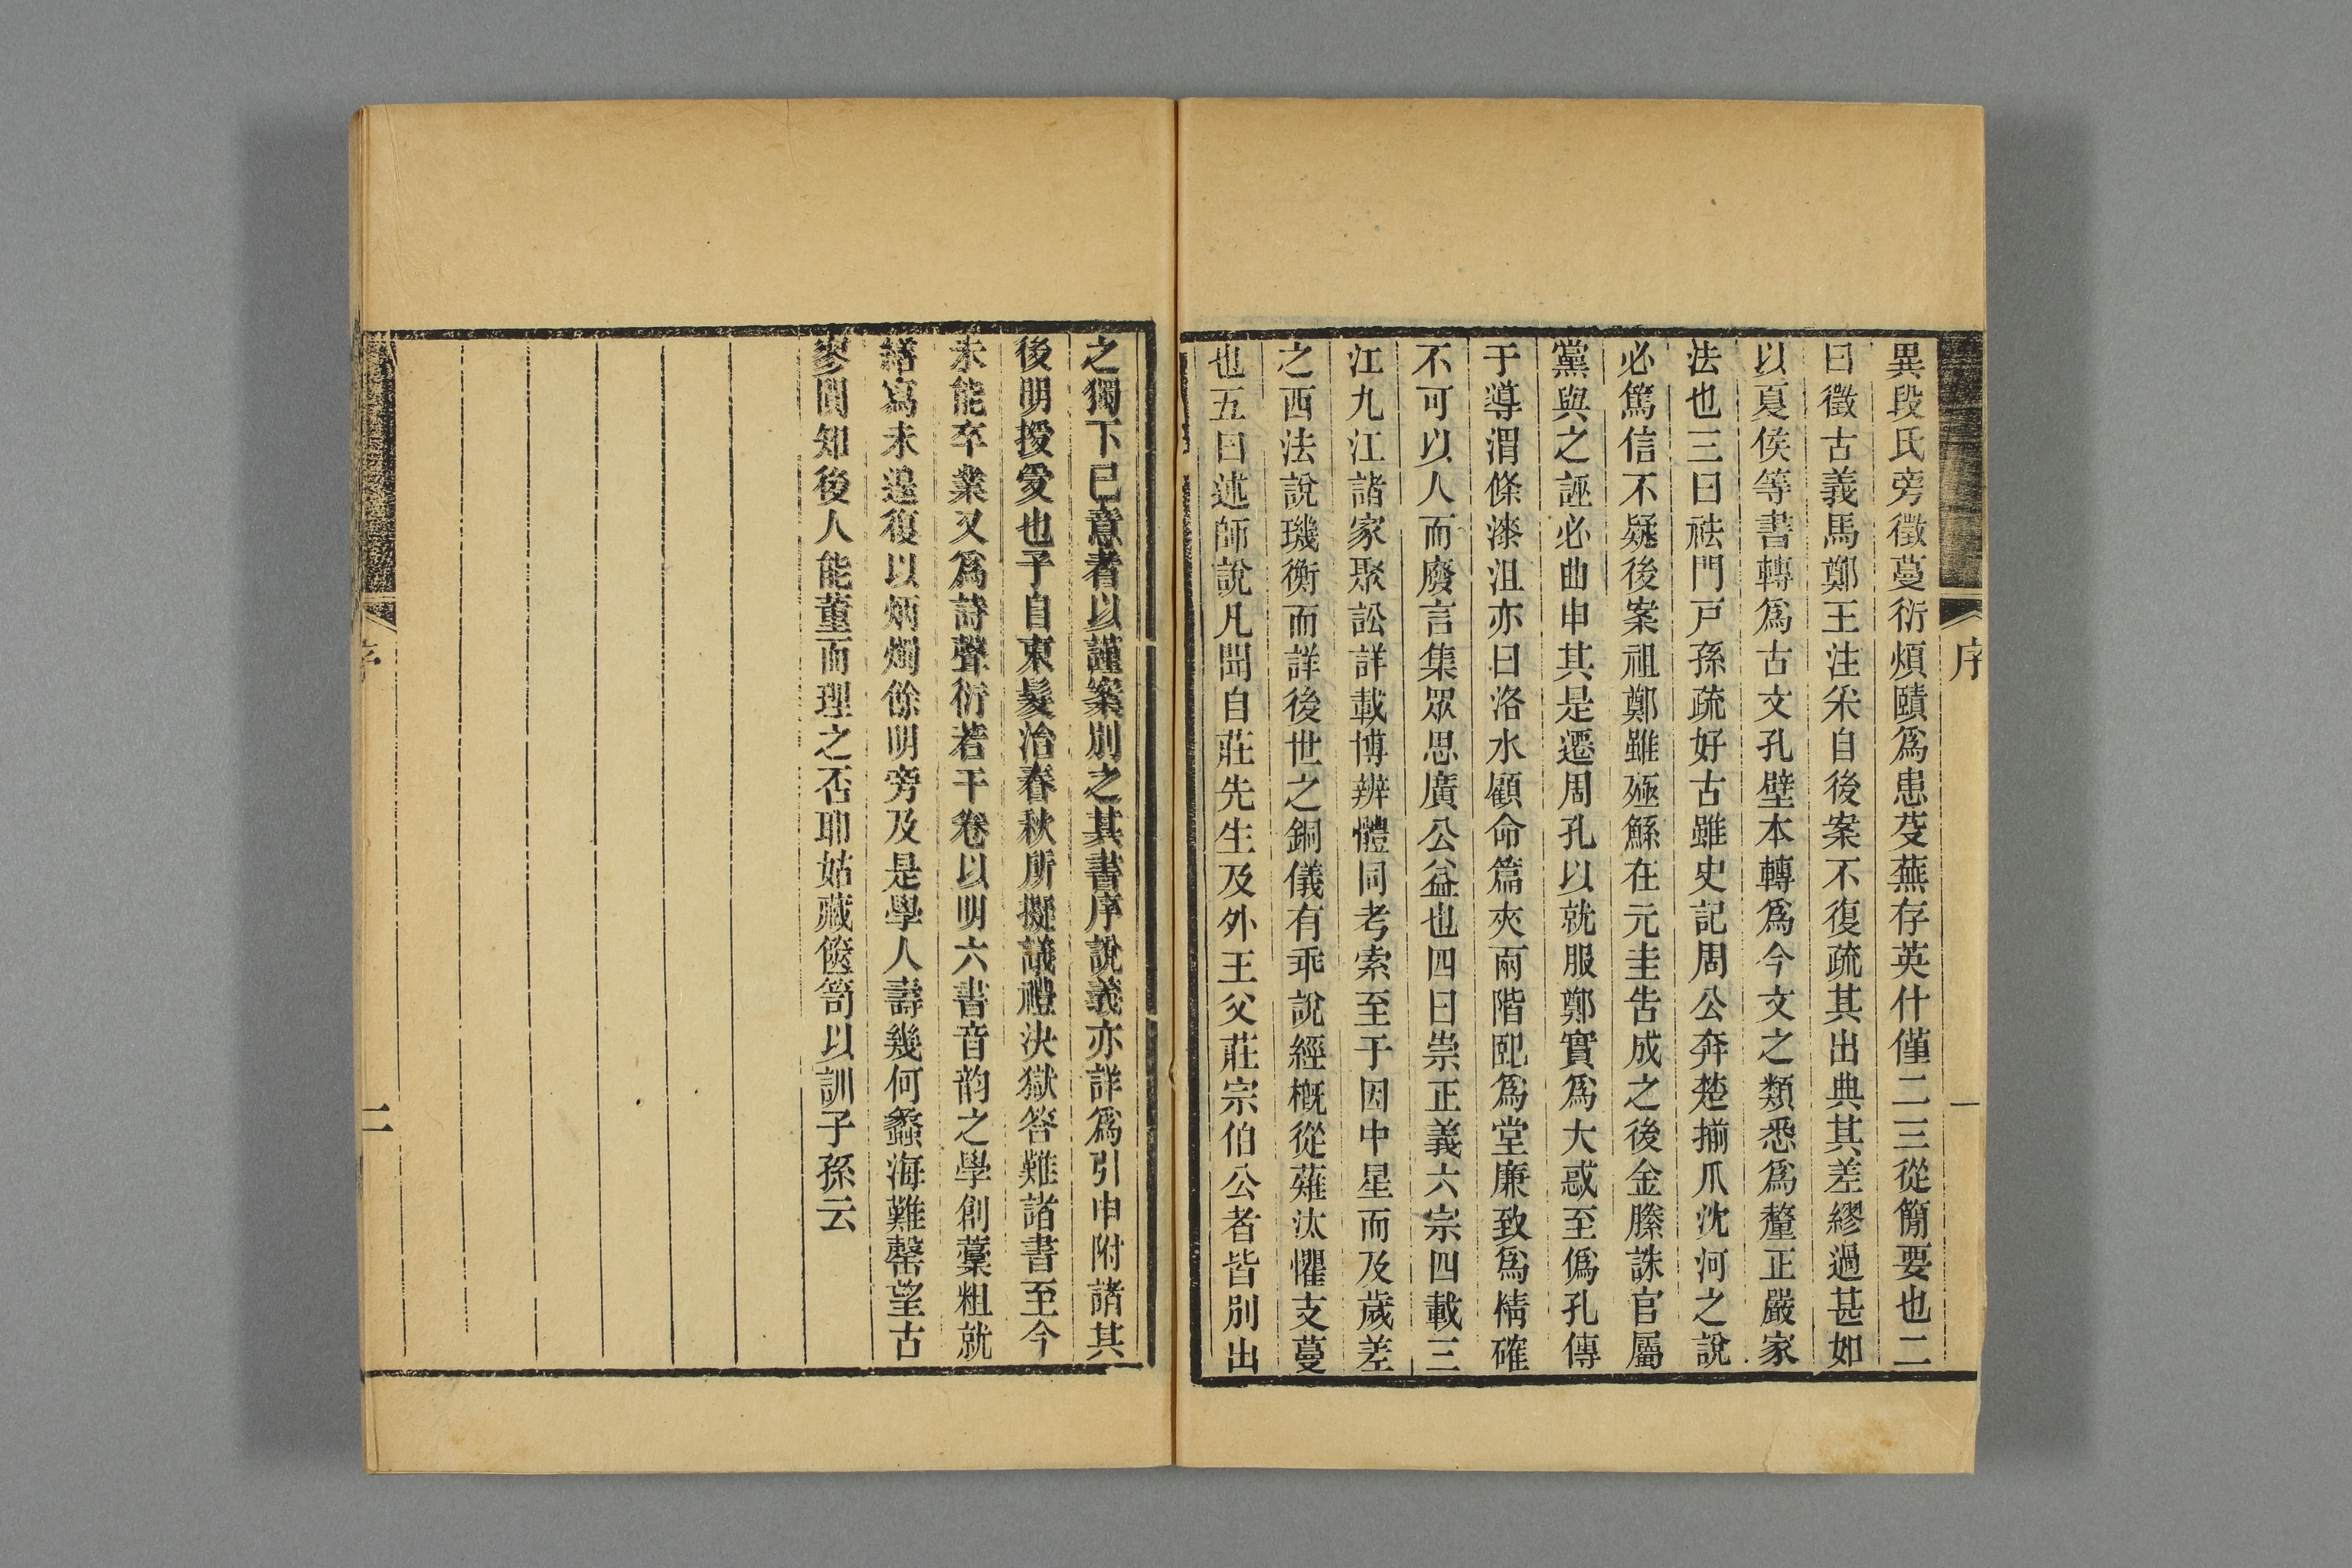 序
一
異段氏旁徵蔓衍煩賾爲患芟蕪存英什僅二三從簡要也二
曰徵古義馬鄭王注釆自後案不復疏其出典其差繆過甚如
以夏侯等書轉爲古文孔壁本轉爲今文之類悉爲釐正嚴家
法也三曰祛門戸孫疏好古雖史記周公奔楚揃爪沈河之說
必篤信不疑後案祖鄭雖殛鯀在元圭告成之後金縢誅官屬
黨與之誣必曲申其是遷周孔以就服鄭實爲大惑至僞孔傳
于導渭條漆沮亦曰洛水顧命篇夾兩階戺爲堂廉致爲精確
不可以人而廢言集眾思廣公益也四曰祟正義六宗四載三
江九江諸家聚訟詳載博辨體同考索至于因中星而及歲差
之西法說璣衡而詳後世之銅儀有乖說經槪從薙汰懼支蔓
也五曰述師說凡聞自莊先生及外王父莊宗伯公者皆別出
之獨下已意者以謹案別之其書序說義亦詳爲引申附諸其
後明授受也予自束髮治春秋所擬議禮決獄答難諸書至今
未能卒業又爲詩聲衍若干卷以明六書音韵之學創藁粗就
繕寫未遑復以炳燭餘明旁及是學人壽幾何蠡海難罄望古
寥閴知後人能董而理之否耶姑藏篋笥以訓子孫云
序
二